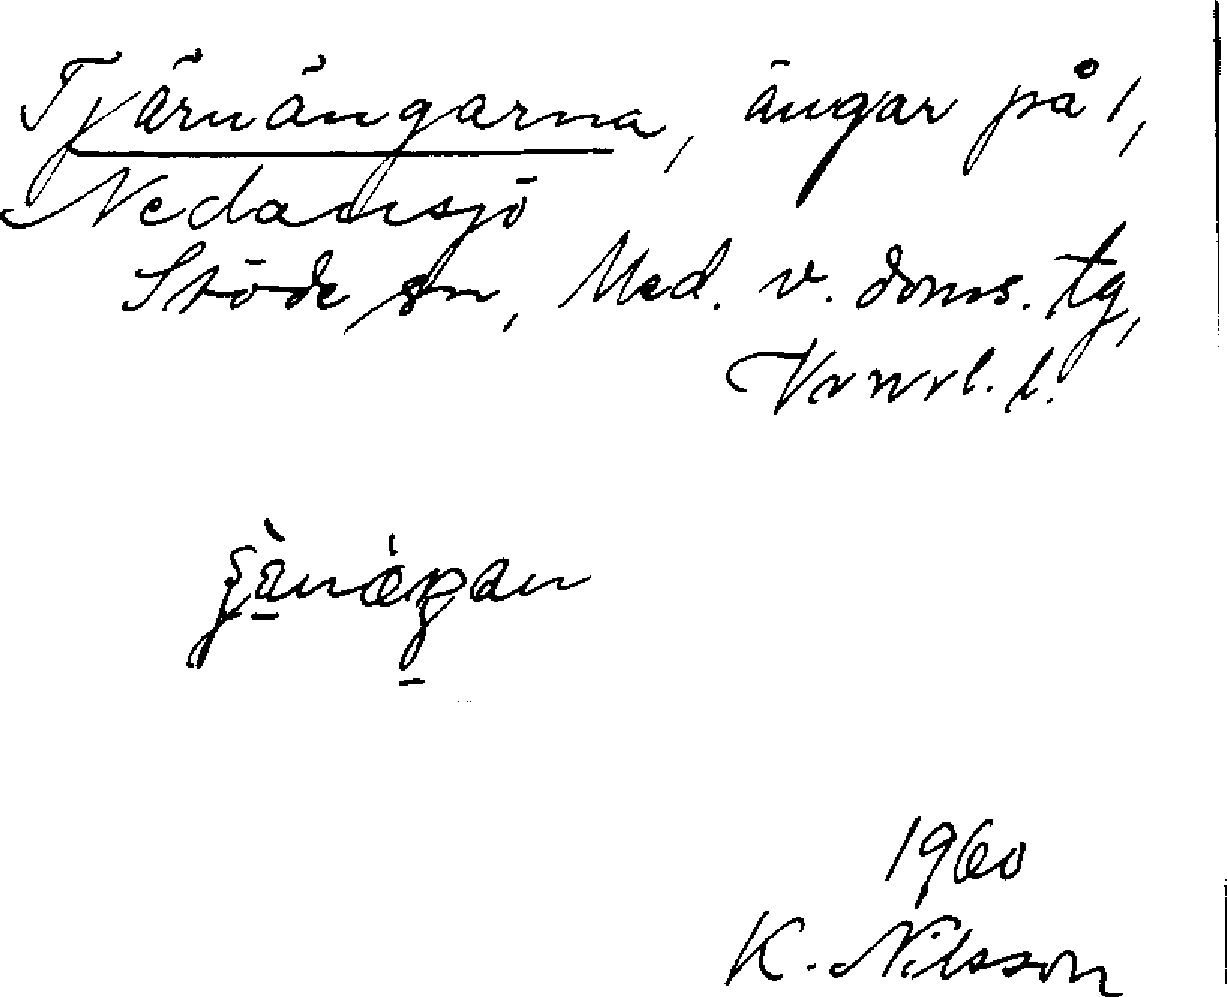 Tjärnängarna, ängar på 1,
Nedansjö
Stöde sn, Med. v. doms. tg,
Vrnrl. l.
1960
K. Nilsson